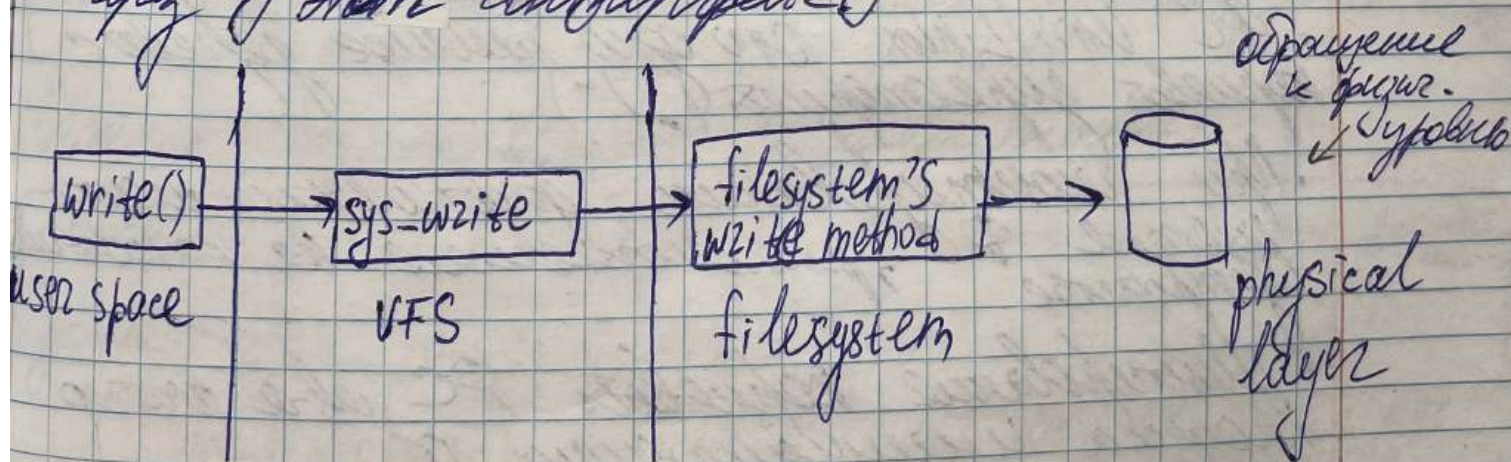 обращение
к физич.
уровню
write()
sys_write
filesystem's
write method
user space
VFS
filesystem
physical
layer